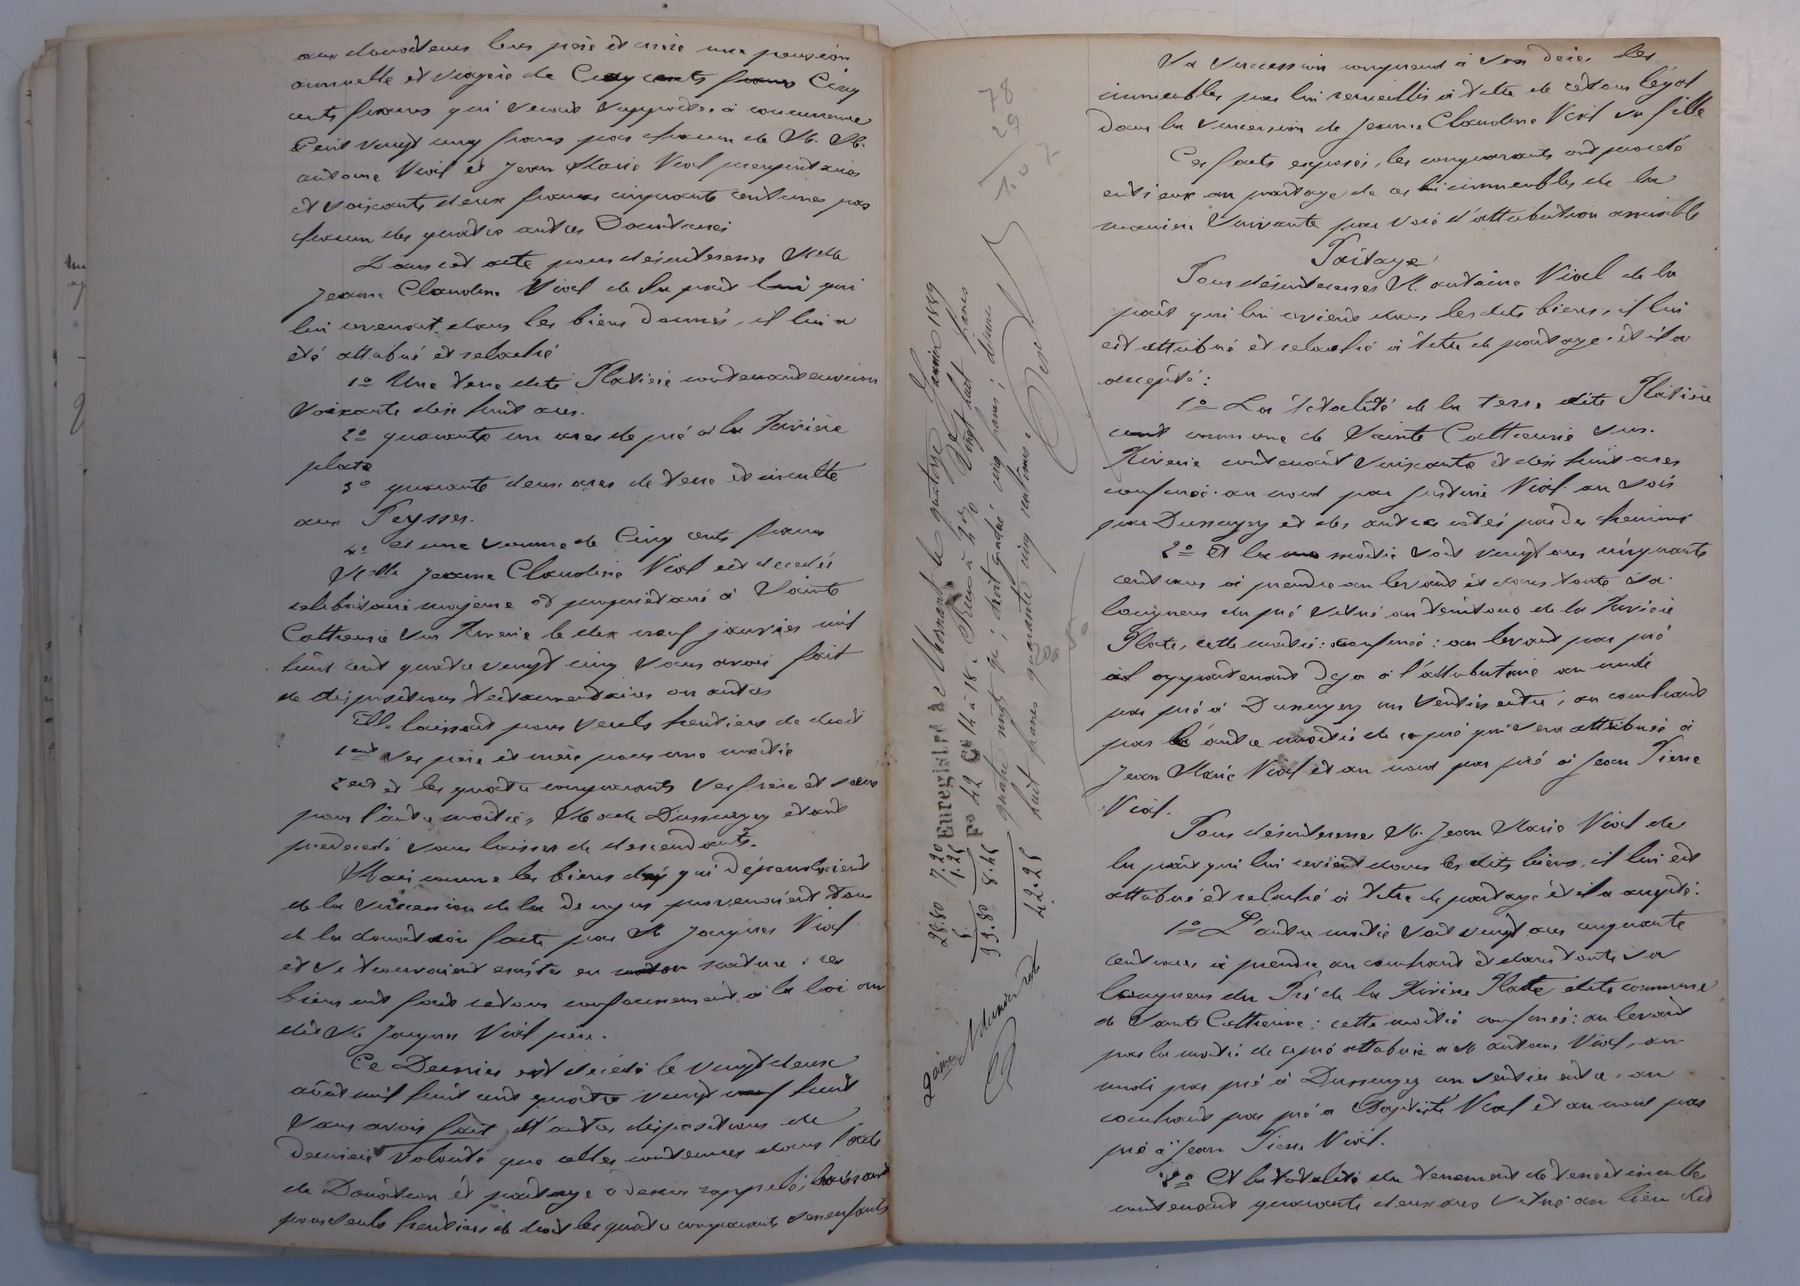 aux donateurs leurs père et mère une pension
annuelle et viagère de Cinq cents francs Cinq
cents francs qui serait supportée à concurrence
Cent vingt cinq francs par chacun de M. M.
antoine Vial et Jean Marie Vial propriétaires
et soixante deux francs cinquante centimes par
chacun des quatre autres Donataires
Dans cet acte pour désintéresser Melle
Jeanne Claudine Vial de la part qui
lui revenait dans les biens donnés, il lui a
été attribué et relaché
1o Une terre dite Platière contenant environ
soixante dix huit ares.
2o quarante un ares de pré à la Rivière
plate
3o quarante deux ares de terre et inculte
aux Peysses.
4o et une somme de Cinq cents francs
Melle Jeanne Claudine Vial est décédée
célibataire majeure et propriétaire à Sainte
Catherine sur Riverie le dix neuf janvier mil
huit cent quatre vingt cinq sans avoir fait
de dispositions testamentaires ou autres
Elle laissait pour seuls héritiers de droit
1ent ses père et mère pour une moitié
2ent et les quatre comparants ses frère et sœurs
pour l'autre moitié, Mme Dussurgey étant
prédécédé sans laisser de descendants.
Mais comme les biens qui dépendaient
de la succession de la de cujus provenaient tous
de la donation faite par M. Jacques Vial
et se trouvaient exister en nature ; ces
biens ont fait retour conformément à la loi au
dit M. Jacques Vial père.
Ce Dernier est décédé le vingt deux
août mil huit cent quatre vingt huit
sans avoir fait d'autres dispositions de
dernière volonté que celles contenues dans l'acte
de Donation et partage ci dessus rappelé, laissant
pour seuls héritiers de droit les quatre comparants ses enfants
78
29
107
Enregistré à Mornant le quatorze Janvier 1889
Fo 42 Co 14 à 18. Reçu à
28.80 7.20
1.25
33.80 8.45
42.25
huit francs quarante cinq centimes.
La succession comprend à son décès les
immeubles par lui recueillis à titre de retour légal
dans la succession de Jeanne Claudine Vial sa fille
Ces faits exposés, les comparants ont procédé
entre eux au partage de ces immeubles de la
manière suivante par voie d'attribution amiable
Partage
Pour désintéresser M. antoine Vial de la
part qui lui revient dans les dits biens, il lui
est attribué et relaché à titre de partage et il a
accepté :
1o La totalité de la terre dite Platière
commune de Sainte Catherine sur
Riverie contenant soixante et dix huit ares
confinée au nord par Justine Vial au soir
par Dussurgey et des autres cotés par des chemins
2o Et la moitié soit vingt ares cinquante
centiares à prendre au levant et dans toute sa
longueur du pré situé au territoire de la Rivière
Plate, cette moitié confinée : au levant par pré
appartenant déja à l'attributaire au midi
par pré à Dussurgey un sentier entre, au couchant
par l'autre moitié de ce pré qui sera attribuée à
Jean Marie Vial et au nord par pré à Jean Pierre
Vial.
Pour désintéresser M. Jean Marie Vial de
la part qui lui revient dans les dits biens, il lui est
attribué et relaché à titre de partage et il a accepté :
1o L'autre moitié soit vingt ares cinquante
centiares à prendre au couchant et dans toute sa
longueur du Pré de la Rivière Platte dite commune
de Sainte Catherine : cette moitié confinée : au levant
par la moitié de ce pré attribuée à M. antoine Vial, au
midi par pré à Dussurgey un sentier entre, au
couchant par pré à Baptiste Vial et au nord par
pré à Jean Pierre Vial.
2o Et la totalité du tènement de terre et inculte
contenant quarante deux ares situé au lieu dit